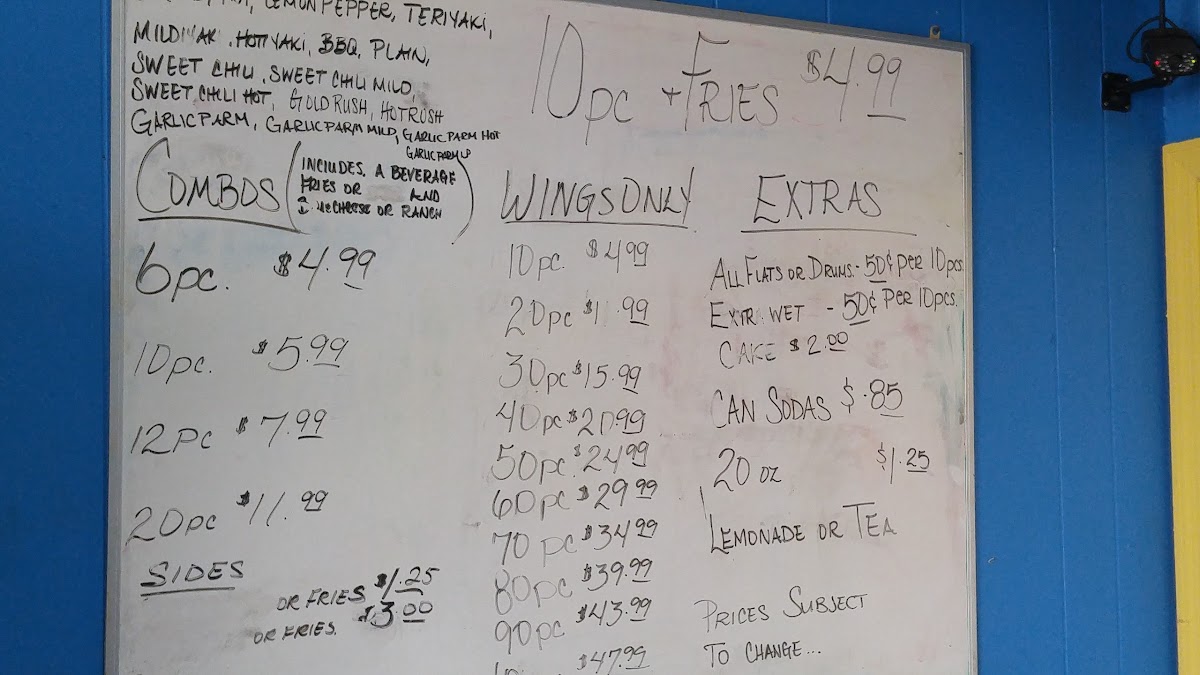 LEMON PEPPER, TERIYAKI,
HOTIYAKI, BBQ, PLAIN,
SWEET CHILI, SWEET CHILI MILD,
SWEET CHILI HOT, GOLD RUSH, HOT RUSH
GARLIC PARM, GARLIC PARM MILD, GARLIC PARM HOT
GARLIC PARM LP
10pc + FRIES $4.99
COMBOS
(INCLUDES A BEVERAGE
FRIES OR AND
CHEESE OR RANCH)
6pc. $4.99
10pc. $5.99
12pc $7.99
20pc $11.99
SIDES
OR FRIES $1.25
OR FRIES. $3.00
WINGS ONLY
10pc. $4.99
20pc $1 .99
30pc $15.99
40pc $20.99
50pc. $24.99
60pc $29.99
70pc $34.99
80pc $39.99
90pc $43.99
$47.99
EXTRAS
ALL FLATS OR DRUMS - 50¢ PER 10pcs.
EXTR WET - 50¢ PER 10pcs.
CAKE $2.00
CAN SODAS $.85
20 oz $1.25
LEMONADE OR TEA
PRICES SUBJECT
TO CHANGE...